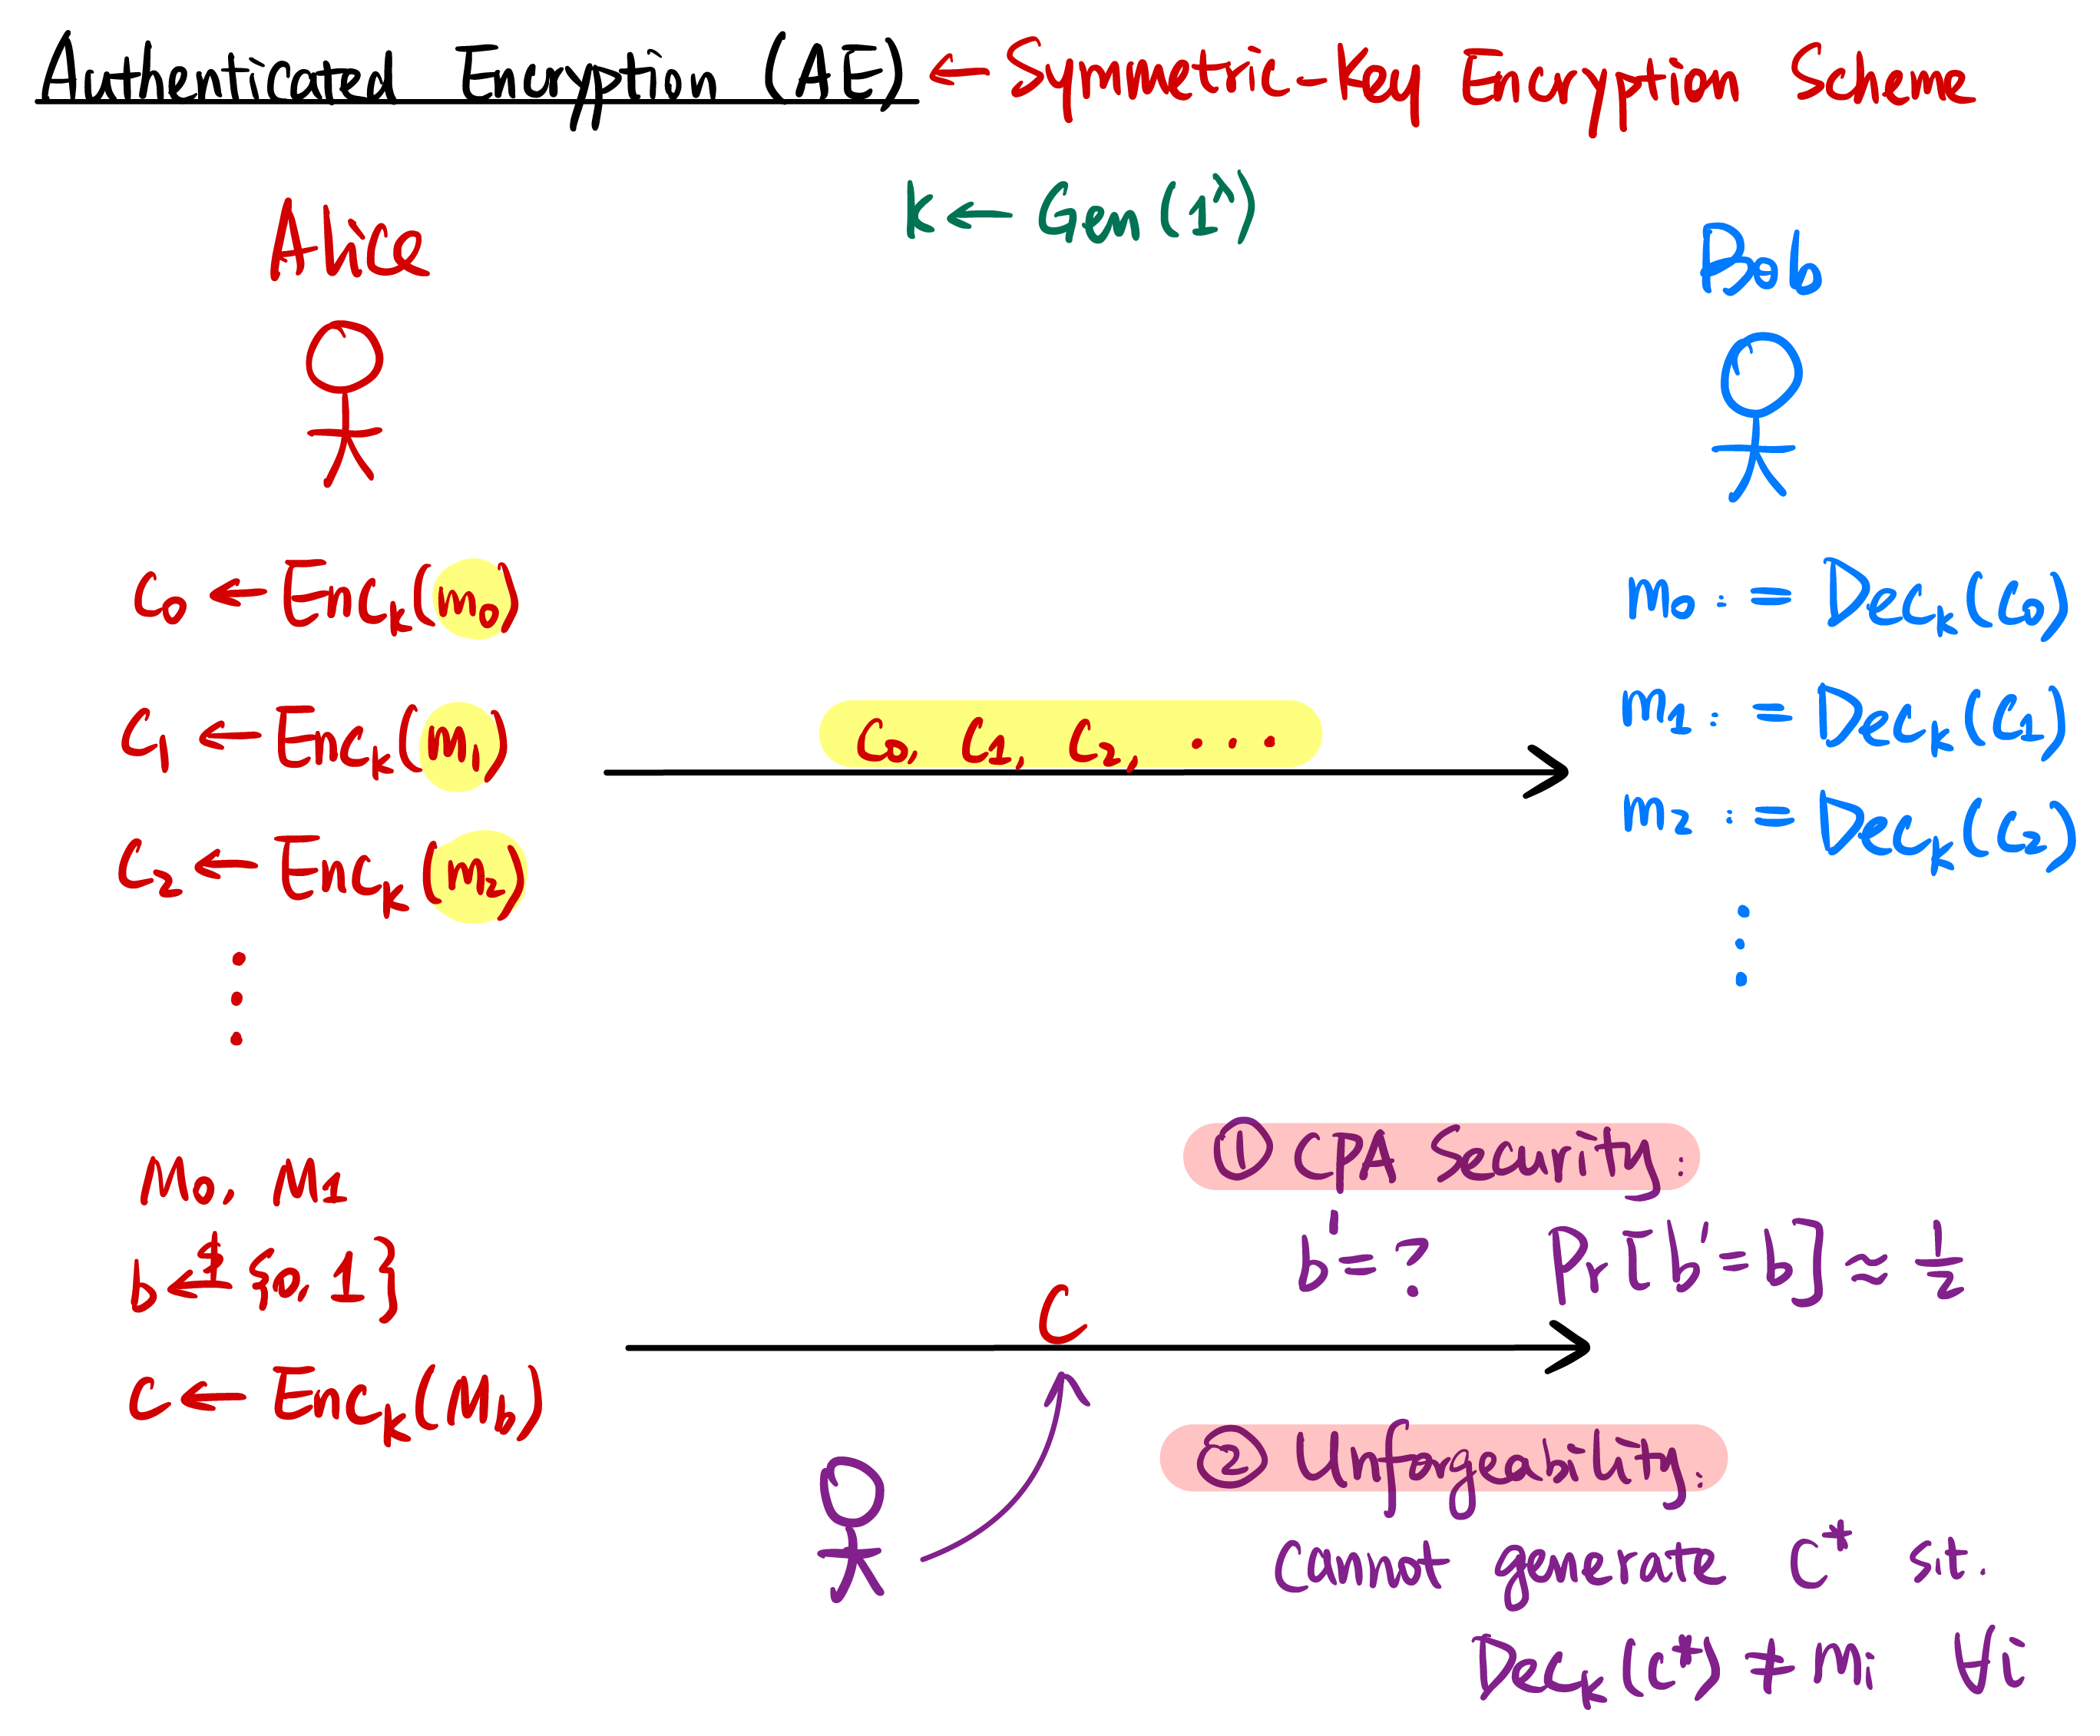 Authenticated Encryption (AE) ← Symmetric-Key Encryption Scheme
k ← Gen(1^λ)
Alice
Bob
c₀ ← Enc_k(m₀)
c₁ ← Enc_k(m₁)
c₂ ← Enc_k(m₂)
⋮
c₀, c₁, c₂, ...
m₀ := Dec_k(c₀)
m₁ := Dec_k(c₁)
m₂ := Dec_k(c₂)
⋮
M₀, M₁
b ←$ {0, 1}
c ← Enc_k(M_b)
C
① CPA Security:
b' = ? Pr[b' = b] ≈ 1/2
② Unforgeability:
cannot generate C* s.t.
Dec_k(c*) ≠ mᵢ ∀i